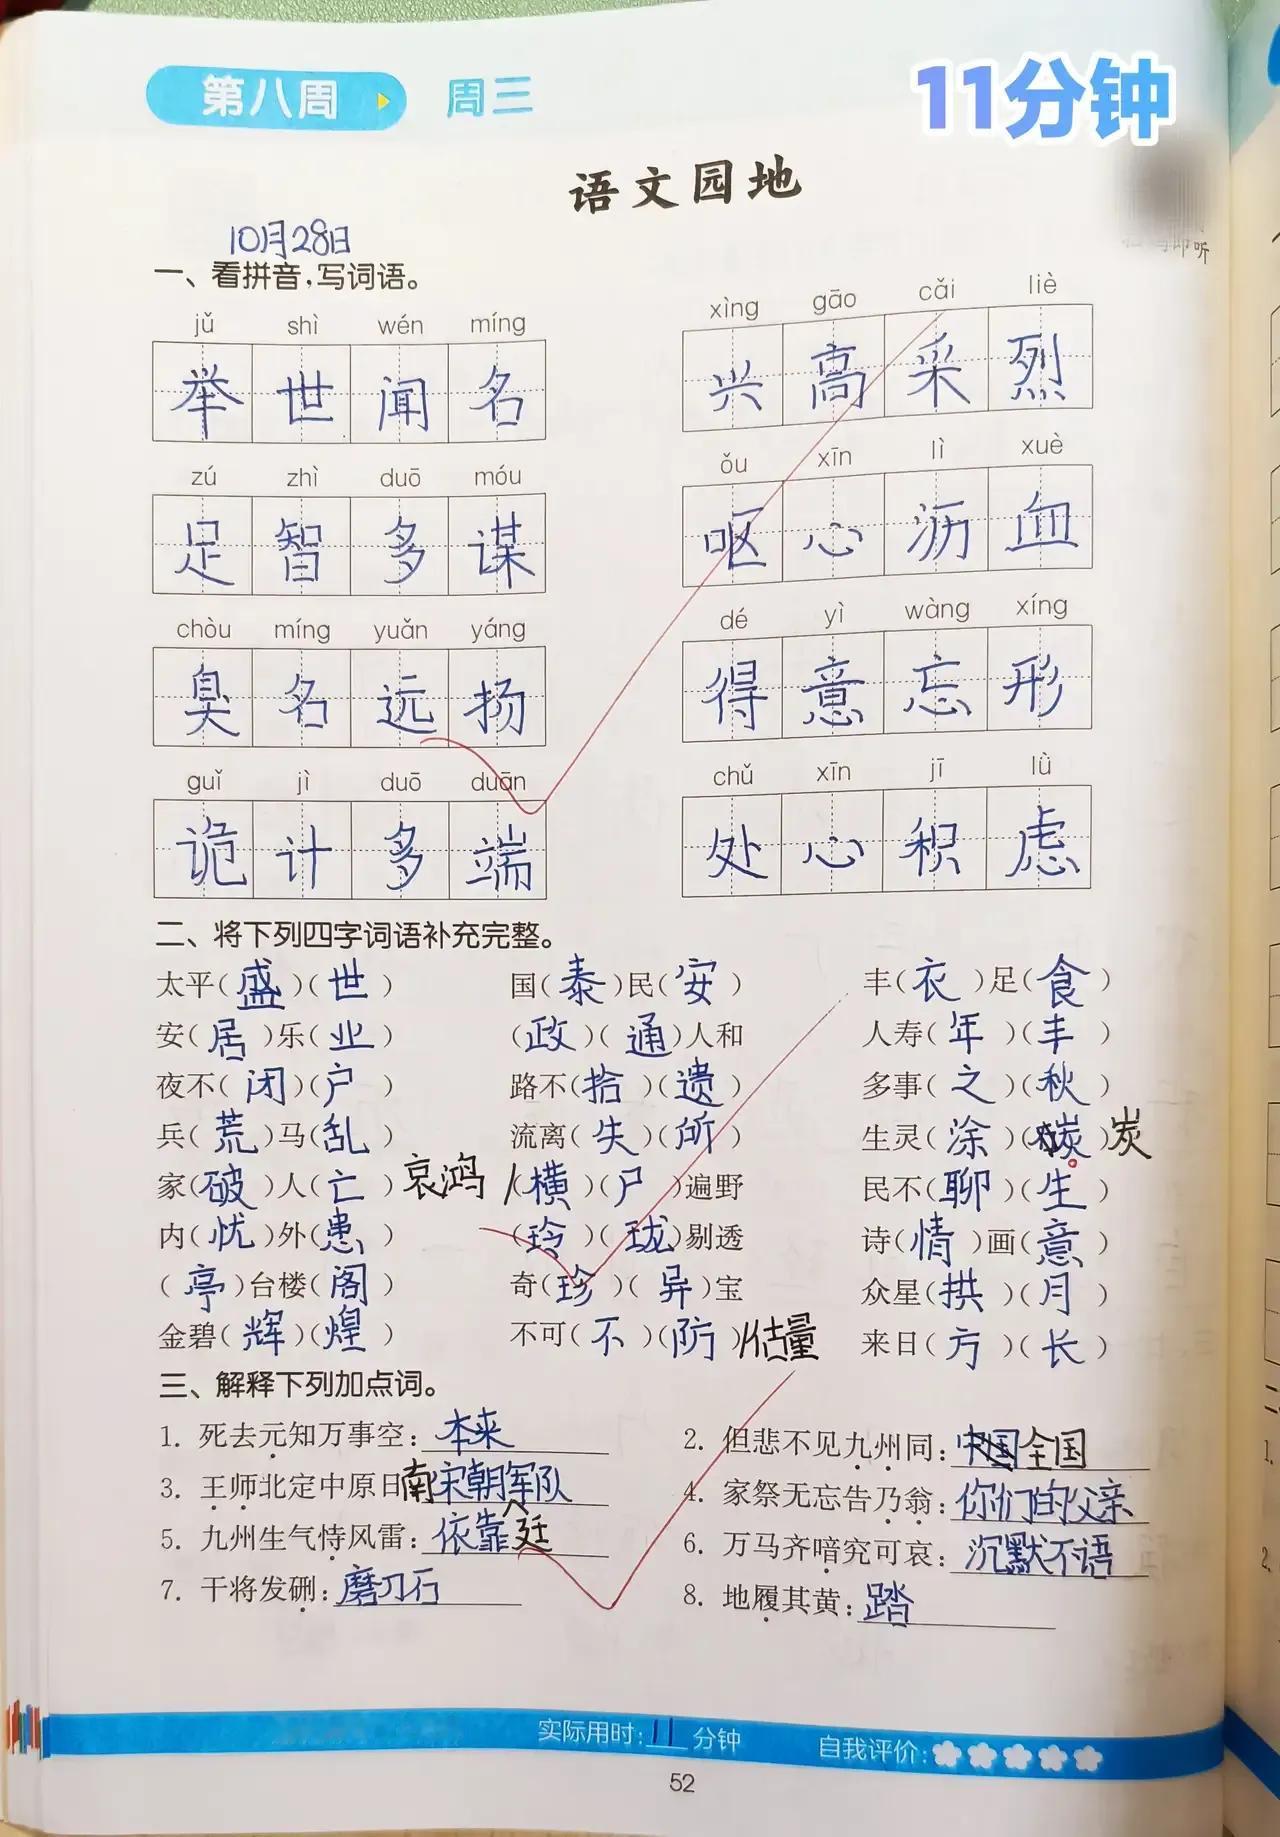 第八周 周三 11分钟
语文园地
10月28日
一、看拼音,写词语。
jǔ shì wén míng xìng gāo cǎi liè
举世闻名 兴高采烈
zú zhì duō móu ǒu xīn lì xuè
足智多谋 呕心沥血
chòu míng yuǎn yáng dé yì wàng xíng
臭名远扬 得意忘形
guǐ jì duō duān chǔ xīn jī lǜ
诡计多端 处心积虑
二、将下列四字词语补充完整。
太平(盛)(世) 国(泰)民(安) 丰(衣)足(食)
安(居)乐(业) (政)(通)人和 人寿(年)(丰)
夜不(闭)(户) 路不(拾)(遗) 多事(之)(秋)
兵(荒)马(乱) 流离(失)(所) 生灵(涂)(碳)炭
家(破)人(亡) 哀鸿/(横)(尸)遍野 民不(聊)(生)
内(忧)外(患) (玲)(珑)剔透 诗(情)画(意)
(亭)台楼(阁) 奇(珍)(异)宝 众星(拱)(月)
金碧(辉)(煌) 不可(不)(防)/估量 来日(方)(长)
三、解释下列加点词。
1. 死去元知万事空:本来 2. 但悲不见九州同:中国全国
3. 王师北定中原日南宋朝军队 4. 家祭无忘告乃翁:你们的父亲
5. 九州生气恃风雷:依靠 廷 6. 万马齐喑究可哀:沉默不语
7. 干将发硎:磨刀石 8. 地履其黄:踏
实际用时:11分钟 自我评价:
52